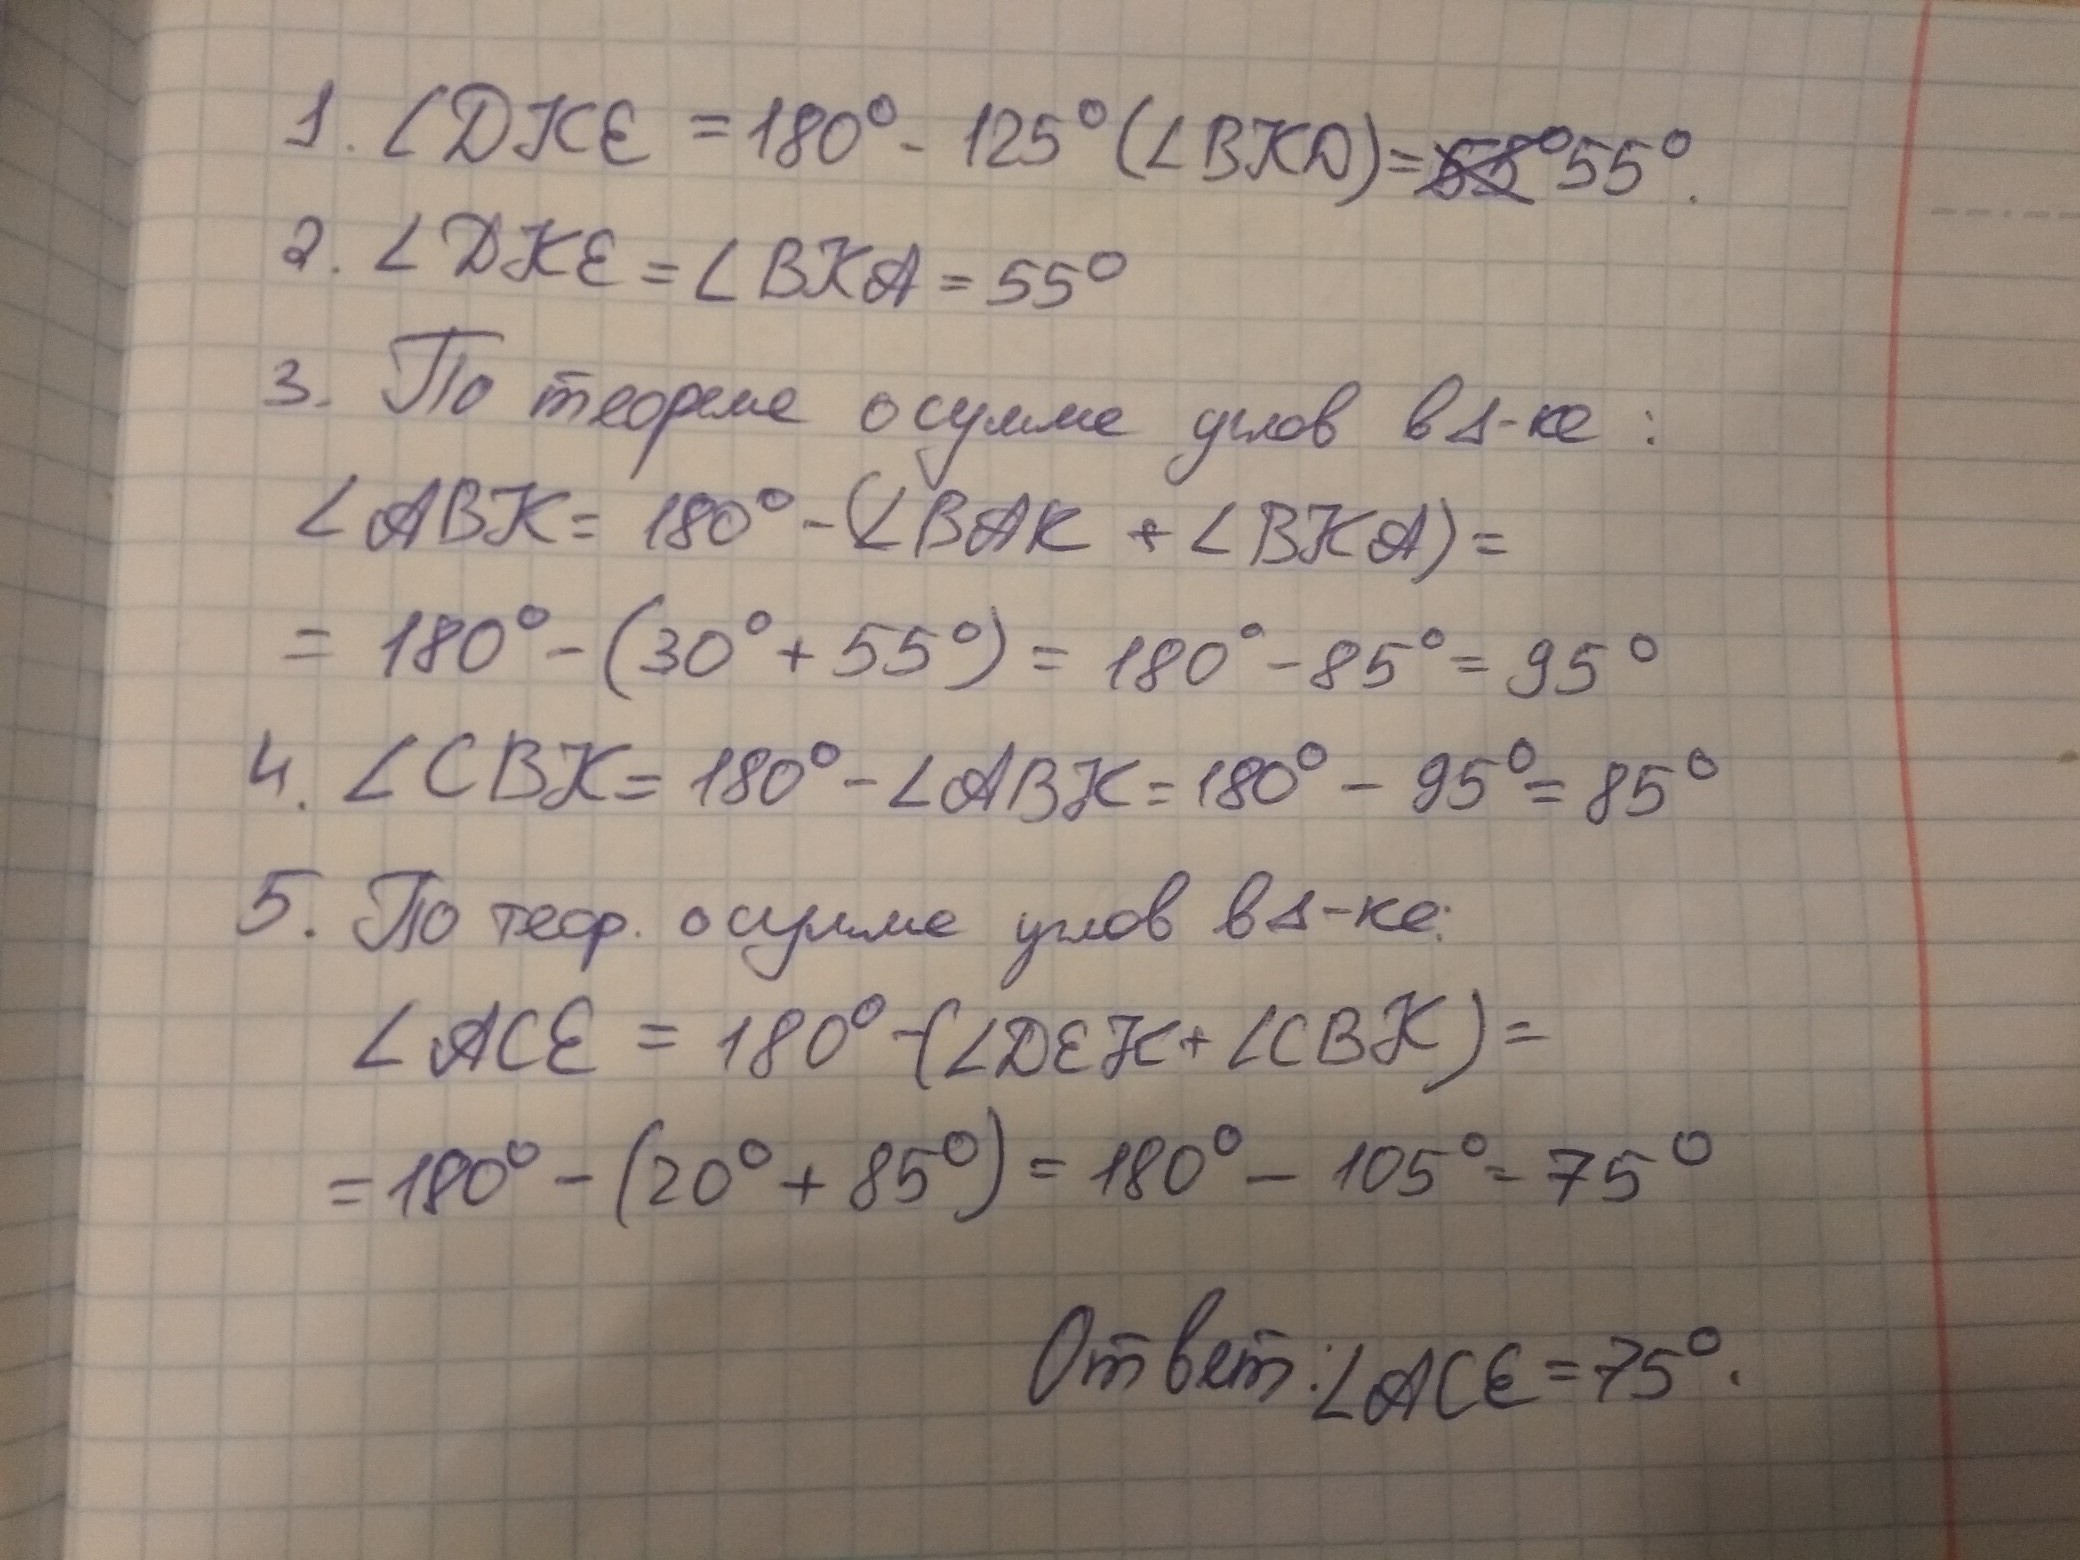 1. ∠DKE = 180° - 125° (∠BKD) = 55°.
2. ∠DKE = ∠BKA = 55°
3. По теореме о сумме углов в Δ-ке :
∠ABK = 180° - (∠BAK + ∠BKA) =
= 180° - (30° + 55°) = 180° - 85° = 95°
4. ∠CBK = 180° - ∠ABK = 180° - 95° = 85°
5. По теор. о сумме углов в Δ-ке:
∠ACE = 180° - (∠DEK + ∠CBK) =
= 180° - (20° + 85°) = 180° - 105° = 75°
Ответ: ∠ACE = 75°.